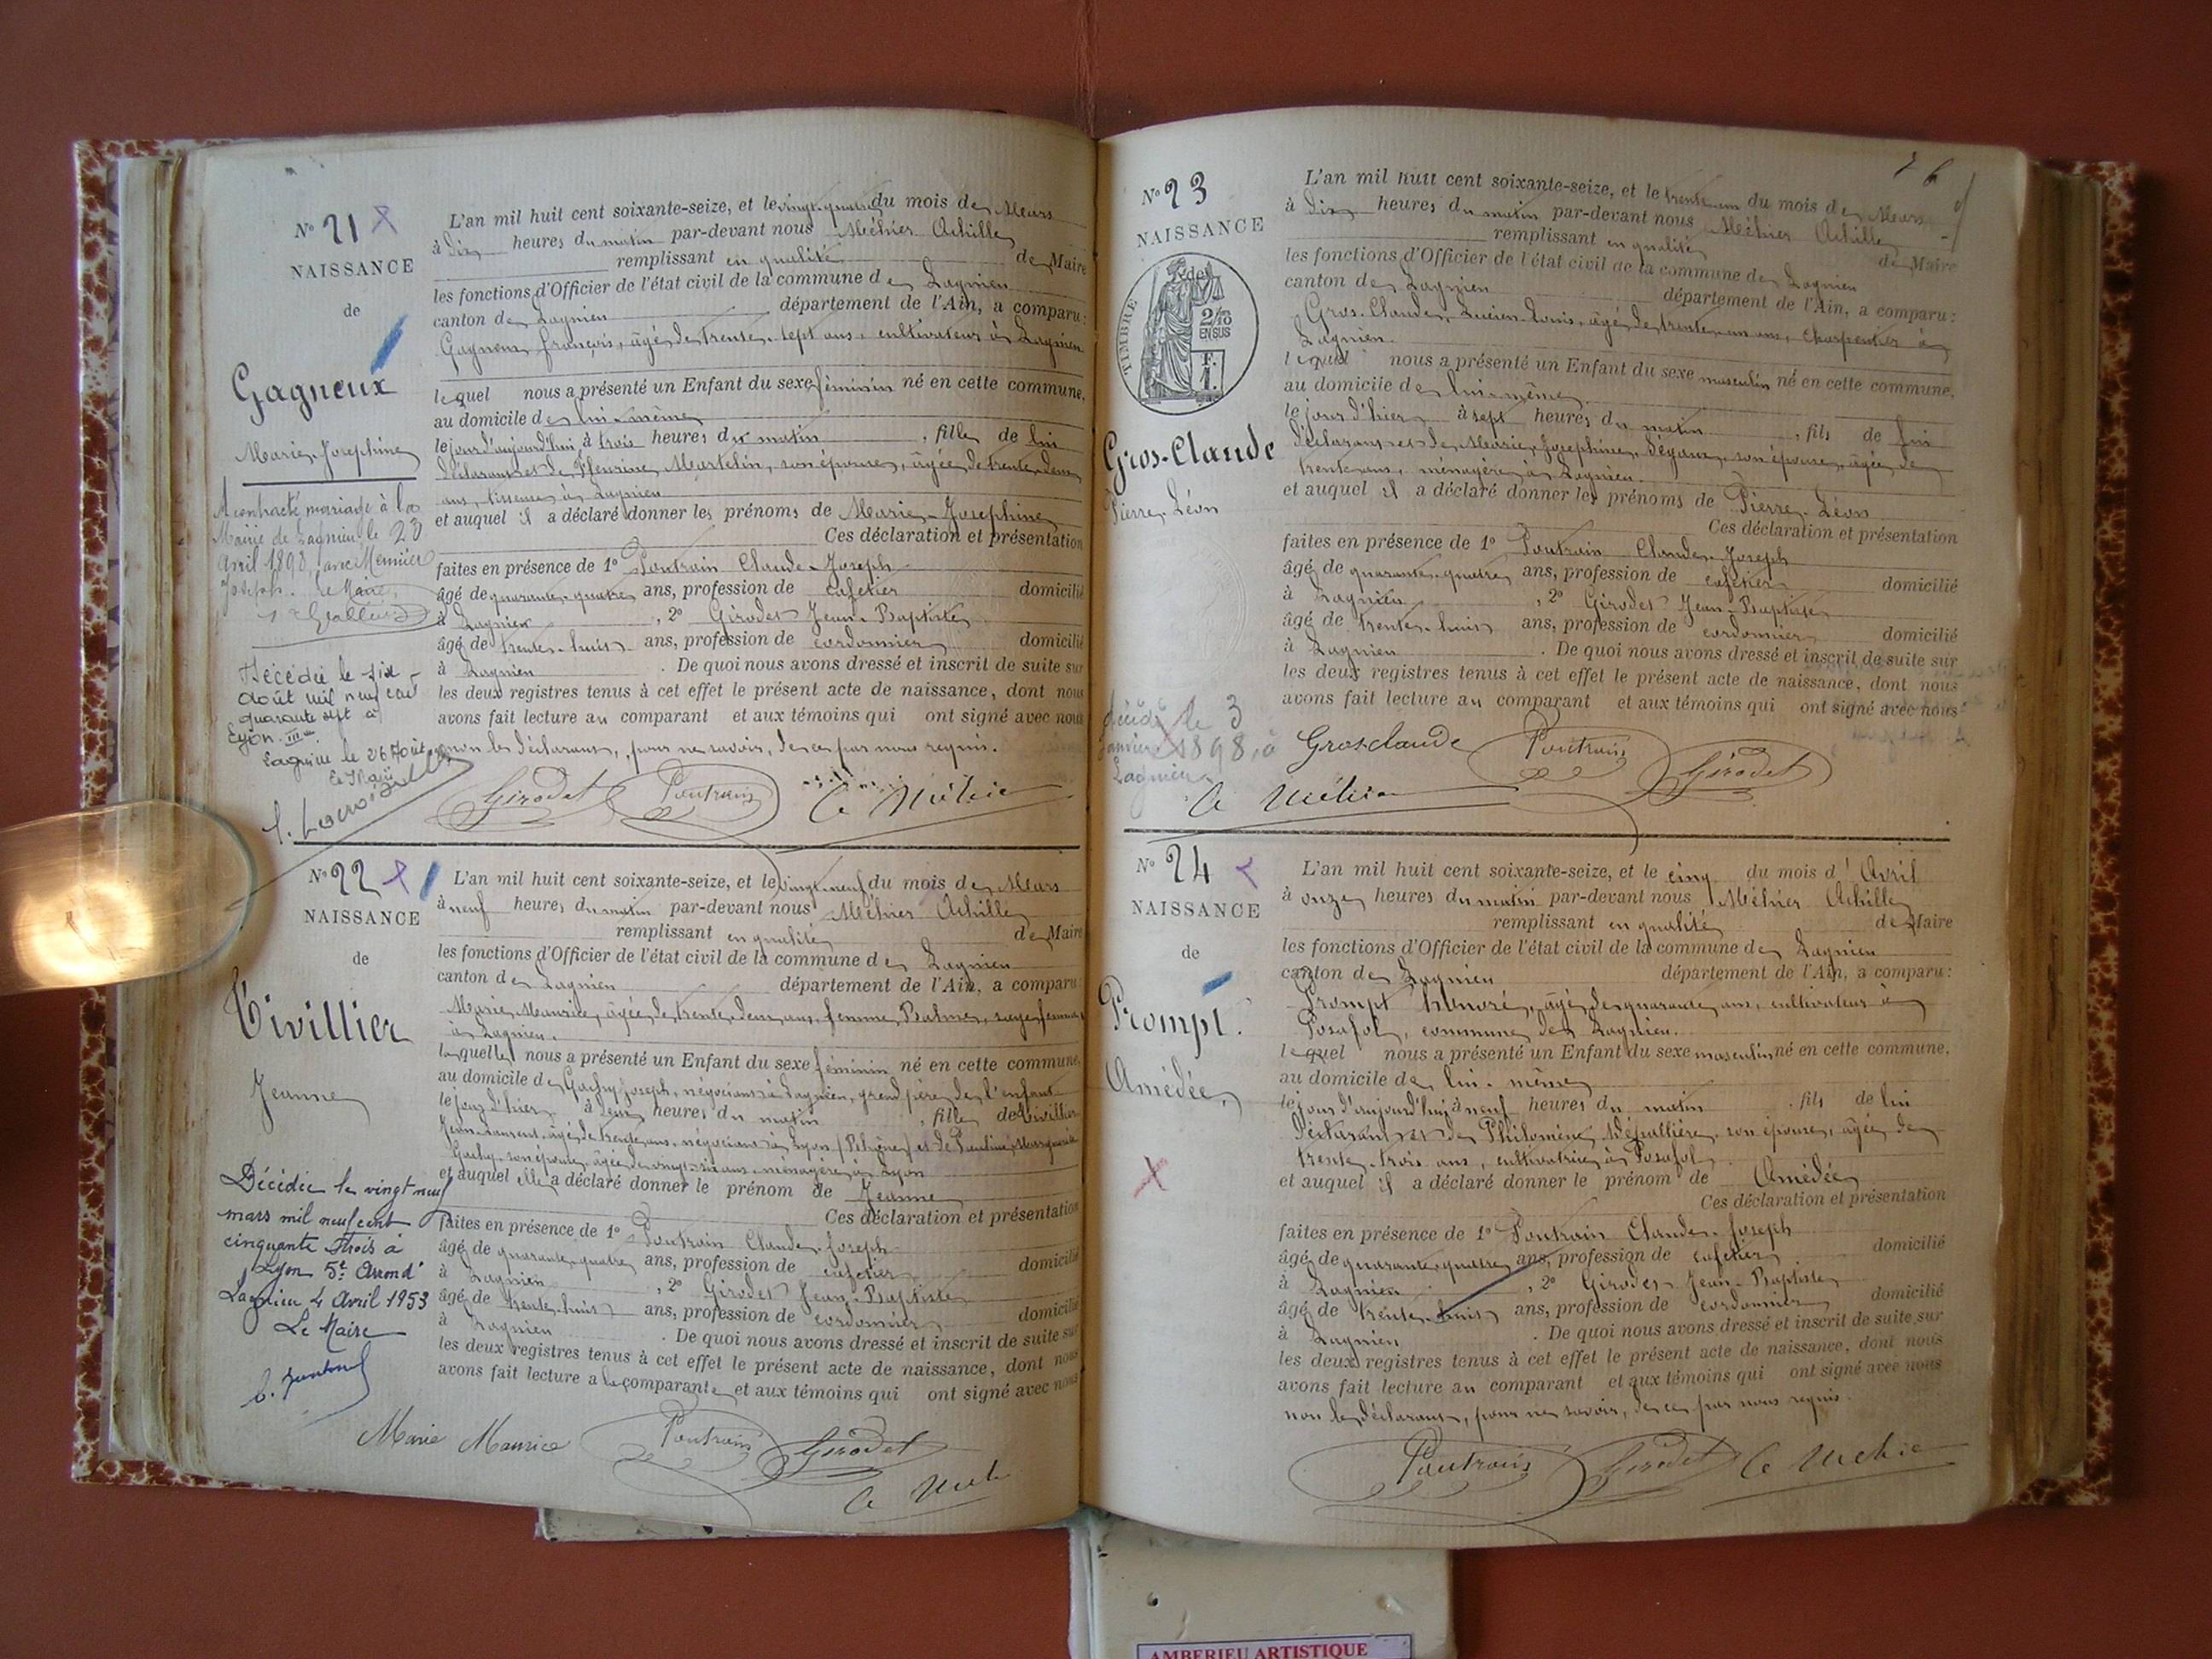 N° 21
NAISSANCE
de
Gagneux
Marie-Josephine
A contracté mariage à la
Mairie de Lagnieu le 23
Avril 1898 avec Meunier
Joseph. Le Maire,
Décédée le six
Août mil neuf cent
quarante sept à
Lyon III
Lagnieu le 26 Août
Le Maire
L'an mil huit cent soixante-seize, et le vingt-quatre du mois de Mars
à dix heures du matin par-devant nous Méhier Achille
remplissant en qualité de Maire
les fonctions d'Officier de l'état civil de la commune de Lagnieu
canton de Lagnieu département de l'Ain, a comparu:
Gagneux François, âgé de trente-sept ans, cultivateur à Lagnieu
lequel nous a présenté un Enfant du sexe féminin né en cette commune,
au domicile de lui-même
le jour d'aujourd'hui à trois heures du matin, fille de lui
déclarant et de Fleurine Martelin, son épouse, âgée de trente-deux
ans, tisseuse à Lagnieu
et auquel il a déclaré donner les prénoms de Marie-Josephine
Ces déclaration et présentation
faites en présence de 1° Poutrain Claude-Joseph
âgé de quarante-quatre ans, profession de cafetier domicilié
à Lagnieu, 2° Girodet Jean-Baptiste
âgé de trente-huit ans, profession de cordonnier domicilié
à Lagnieu. De quoi nous avons dressé et inscrit de suite sur
les deux registres tenus à cet effet le présent acte de naissance, dont nous
avons fait lecture au comparant et aux témoins qui ont signé avec nous
non le déclarant, pour ne savoir, de ce par nous requis.
Girodet Poutrain A Méhier
N° 22
NAISSANCE
de
Vivillier
Jeanne
Décédée le vingt neuf
mars mil neuf cent
cinquante trois à
Lyon 5e Arrondt
Lagnieu 4 Avril 1953
Le Maire
L'an mil huit cent soixante-seize, et le vingt-neuf du mois de Mars
à neuf heures du matin par-devant nous Méhier Achille
remplissant en qualité de Maire
les fonctions d'Officier de l'état civil de la commune de Lagnieu
canton de Lagnieu département de l'Ain, a comparu:
Marie Maurice, âgée de trente-deux ans, femme Balme, sage femme
à Lagnieu.
laquelle nous a présenté un Enfant du sexe féminin né en cette commune,
au domicile de Gachy Joseph, négociant à Lagnieu, grand père de l'enfant
le jour d'hier à deux heures du matin, fille de Vivillier
Jean-Laurent, âgé de trente ans, négociant à Lyon (Rhône) et de Pauline Marguerite
Gachy, son épouse, âgée de vingt-six ans, ménagère à Lyon
et auquel elle a déclaré donner le prénom de Jeanne
Ces déclaration et présentation
faites en présence de 1° Poutrain Claude-Joseph
âgé de quarante-quatre ans, profession de cafetier domicilié
à Lagnieu, 2° Girodet Jean-Baptiste
âgé de trente-huit ans, profession de cordonnier domicilié
à Lagnieu. De quoi nous avons dressé et inscrit de suite sur
les deux registres tenus à cet effet le présent acte de naissance, dont nous
avons fait lecture a la comparante et aux témoins qui ont signé avec nous
Marie Maurice Poutrain Girodet
A Méh
76
N° 23
NAISSANCE
de
TIMBRE
2/10
EN SUS
F.
1.
Gros-Claude
Pierre Léon
décédé le 3
Janvier 1898, à
Lagnieu
L'an mil huit cent soixante-seize, et le trente-un du mois de Mars
à dix heures du matin par-devant nous Méhier Achille
remplissant en qualité de Maire
les fonctions d'Officier de l'état civil de la commune de Lagnieu
canton de Lagnieu département de l'Ain, a comparu:
Gros-Claude, Lucien-Louis, âgé de trente-un ans, charpentier à
Lagnieu.
lequel nous a présenté un Enfant du sexe masculin né en cette commune,
au domicile de lui-même.
le jour d'hier à sept heures du matin, fils de lui
déclarant et de Marie-Josephine, son épouse, âgée de
trente ans, ménagère à Lagnieu.
et auquel il a déclaré donner les prénoms de Pierre-Léon
Ces déclaration et présentation
faites en présence de 1° Poutrain Claude-Joseph
âgé de quarante-quatre ans, profession de cafetier domicilié
à Lagnieu, 2° Girodet Jean-Baptiste
âgé de trente-huit ans, profession de cordonnier domicilié
à Lagnieu. De quoi nous avons dressé et inscrit de suite sur
les deux registres tenus à cet effet le présent acte de naissance, dont nous
avons fait lecture au comparant et aux témoins qui ont signé avec nous
Grosclaude Poutrain Girodet
A Méhier
N° 24
NAISSANCE
de
Prompt.
Amédée
L'an mil huit cent soixante-seize, et le cinq du mois d'Avril
à onze heures du matin par-devant nous Méhier Achille
remplissant en qualité de Maire
les fonctions d'Officier de l'état civil de la commune de Lagnieu
canton de Lagnieu département de l'Ain, a comparu:
Prompt honoré, âgé de quarante ans, cultivateur à
Posafol, commune de Lagnieu.
lequel nous a présenté un Enfant du sexe masculin né en cette commune,
au domicile de lui-même
le jour d'aujourd'hui à neuf heures du matin, fils de lui
déclarant et de Philomène, son épouse, âgée de
trente-trois ans, cultivatrice à Posafol
et auquel il a déclaré donner le prénom de Amédée
Ces déclaration et présentation
faites en présence de 1° Poutrain Claude-Joseph
âgé de quarante-quatre ans, profession de cafetier domicilié
à Lagnieu, 2° Girodet Jean-Baptiste
âgé de trente-huit ans, profession de cordonnier domicilié
à Lagnieu. De quoi nous avons dressé et inscrit de suite sur
les deux registres tenus à cet effet le présent acte de naissance, dont nous
avons fait lecture au comparant et aux témoins qui ont signé avec nous
non le déclarant, pour ne savoir, de ce par nous requis.
Poutrain Girodet A Méhier
AMBERIEU ARTISTIQUE